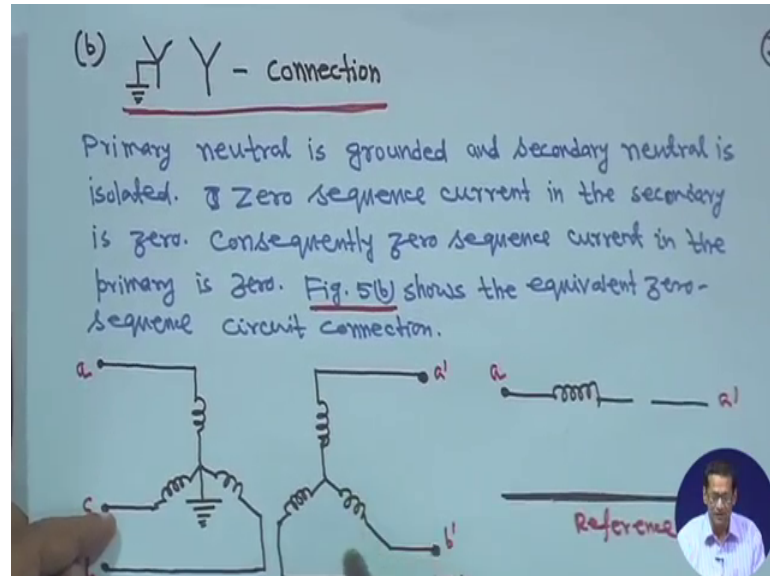 (b) Y Y - Connection
Primary neutral is grounded and secondary neutral is
isolated. Zero sequence current in the secondary
is zero. Consequently zero sequence current in the
primary is zero. Fig. 5(b) shows the equivalent zero-
sequence circuit connection.
a a' a a'
c b'
Reference